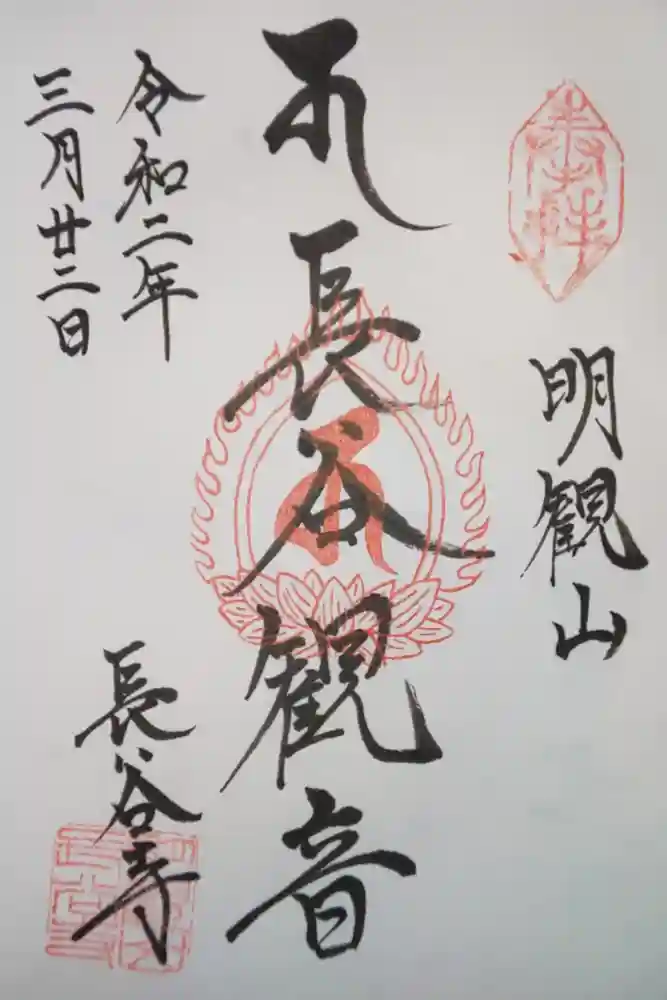 奉拝
明観山
𑖭
長谷観音
令和二年
三月廿二日
長谷寺